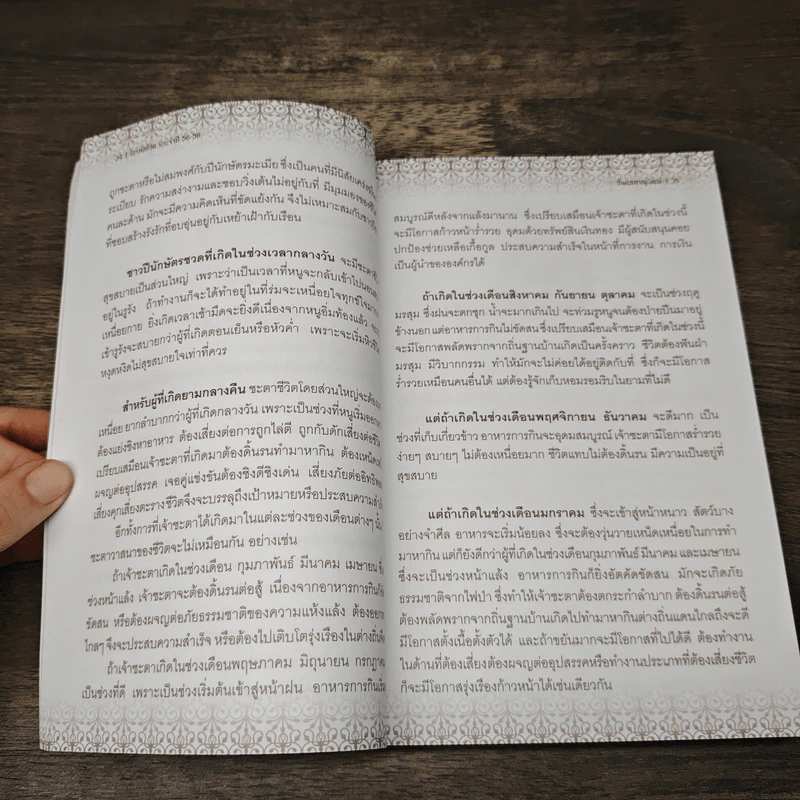 ถูกชะตาหรือไม่สมพงศ์กับปีนักษัตรมะเมีย ซึ่งเป็นคนที่มีนิสัย
ระเบียบ รักความสง่างามและชอบวิ่งเต้นไม่อยู่กับที่ มีมุมมอง
คนละด้าน มักจะมีความคิดเห็นที่ขัดแย้งกัน จึงไม่เหมาะสมกับ
ที่ชอบสร้างรังรักที่อบอุ่นอยู่กับเหย้าเฝ้ากับเรือน
ชาวปีนักษัตรชวดที่เกิดในช่วงเวลากลางวัน จะมีชะตา
สุขสบายเป็นส่วนใหญ่ เพราะว่าเป็นเวลาที่หนูจะกลับเข้าไป
อยู่ในรูรัง ถ้าทำงานก็จะได้ทำอยู่ในที่ร่มจะเหนื่อยใจทุกข์ใจ
เหนื่อยกาย ยิ่งเกิดเวลาเช้ามืดจะยิ่งดีเนื่องจากหนูอิ่มท้องแล้ว
เข้ารูรังจะสบายกว่าผู้ที่เกิดตอนเย็นหรือหัวค่ำ เพราะจะเริ่มหิว
หงุดหงิดไม่สุขสบายใจเท่าที่ควร
สำหรับผู้ที่เกิดยามกลางคืน ชะตาชีวิตโดยส่วนใหญ่จะต้อง
เหนื่อย ยากลำบากกว่าผู้ที่เกิดกลางวัน เพราะเป็นช่วงที่หนูเริ่มออก
ต้องแย่งชิงหาอาหาร ต้องเสี่ยงต่อการถูกไล่ตี ถูกกับดักเสี่ยงต่อชีวิต
เปรียบเสมือนเจ้าชะตาที่เกิดมาต้องดิ้นรนทำมาหากิน ต้อง
ผจญต่ออุปสรรค เจอคู่แข่งขันต้องชิงดีชิงเด่น เสี่ยงภัยต่อ
เสี่ยงคุกเสี่ยงตะรางชีวิตจึงจะบรรลุถึงเป้าหมายหรือประสบความ
อีกทั้งการที่เจ้าชะตาได้เกิดมาในแต่ละช่วงของเดือนต่างๆ
ชะตาวาสนาของชีวิตจะไม่เหมือนกัน อย่างเช่น
ถ้าเจ้าชะตาเกิดในช่วงเดือน กุมภาพันธ์ มีนาคม เมษายน
ช่วงหน้าแล้ง เจ้าชะตาจะต้องดิ้นรนต่อสู้ เนื่องจากอาหารการกิน
ขัดสน หรือต้องผจญต่อภัยธรรมชาติของความแห้งแล้ง ต้องออก
ไกลๆ จึงจะประสบความสำเร็จ หรือต้องไปเติบโตรุ่งเรืองในต่างถิ่น
ถ้าเจ้าชะตาเกิดในช่วงเดือนพฤษภาคม มิถุนายน กรกฎาคม
เป็นช่วงที่ดี เพราะเป็นช่วงเริ่มต้นเข้าสู่หน้าฝน อาหารการกินเริ่ม
สมบูรณ์ดีหลังจากแล้งมานาน ซึ่งเปรียบเสมือนเจ้าชะตาที่เกิดในช่วงนี้
จะมีโอกาสก้าวหน้าร่ำรวย อุดมด้วยทรัพย์สินเงินทอง มีผู้สนับสนุนคอย
ปกป้องช่วยเหลือเกื้อกูล ประสบความสำเร็จในหน้าที่การงาน การเงิน
เป็นผู้นำขององค์กรได้
ถ้าเกิดในช่วงเดือนสิงหาคม กันยายน ตุลาคม จะเป็นช่วงฤดู
มรสุม ซึ่งฝนจะตกชุก น้ำจะมากเกินไป จะท่วมรูหนูจนต้องป่ายปีนมาอยู่
ข้างนอก แต่อาหารการกินไม่ขัดสน ซึ่งเปรียบเสมือนเจ้าชะตาที่เกิดในช่วงนี้
จะมีโอกาสพลัดพรากจากถิ่นฐานบ้านเกิดเป็นครั้งคราว ชีวิตต้องพันผ่า
มรสุม มีวิบากกรรม ทำให้มักจะไม่ค่อยได้อยู่ติดกับที่ ซึ่งก็จะมีโอกาส
ร่ำรวยเหมือนคนอื่นได้ แต่ต้องรู้จักเก็บหอมรอมริบในยามที่ไม่ดี
แต่ถ้าเกิดในช่วงเดือนพฤศจิกายน ธันวาคม จะดีมาก เป็น
ช่วงที่เก็บเกี่ยวข้าว อาหารการกินจะอุดมสมบูรณ์ เจ้าชะตามีโอกาสร่ำรวย
ง่ายๆ สบายๆ ไม่ต้องเหนื่อยมาก ชีวิตแทบไม่ต้องดิ้นรน มีความเป็นอยู่ที่
สุขสบาย
แต่ถ้าเกิดในช่วงเดือนมกราคม ซึ่งจะเข้าสู่หน้าหนาว สัตว์บาง
อย่างจำศีล อาหารจะเริ่มน้อยลง ซึ่งจะต้องวุ่นวายเหน็ดเหนื่อยในการทำ
มาหากิน แต่ก็ยังดีกว่าผู้ที่เกิดในช่วงเดือนกุมภาพันธ์ มีนาคม และเมษายน
ซึ่งจะเป็นช่วงหน้าแล้ง อาหารการกินก็ยิ่งอัตคัดขัดสน มักจะเกิดภัย
ธรรมชาติจากไฟป่า ซึ่งทำให้เจ้าชะตาต้องตระกำลำบาก ต้องดิ้นรนต่อสู้
ต้องพลัดพรากจากถิ่นฐานบ้านเกิดไปทำมาหากินต่างถิ่นแดนไกลถึงจะดี
มีโอกาสตั้งเนื้อตั้งตัวได้ และถ้าขยันมากจะมีโอกาสที่ไปได้ดี ต้องทำงาน
ในด้านที่ต้องเสี่ยงต้องผจญต่ออุปสรรคหรือทำงานประเภทที่ต้องเสี่ยงชีวิต
ก็จะมีโอกาสรุ่งเรืองก้าวหน้าได้เช่นเดียวกัน